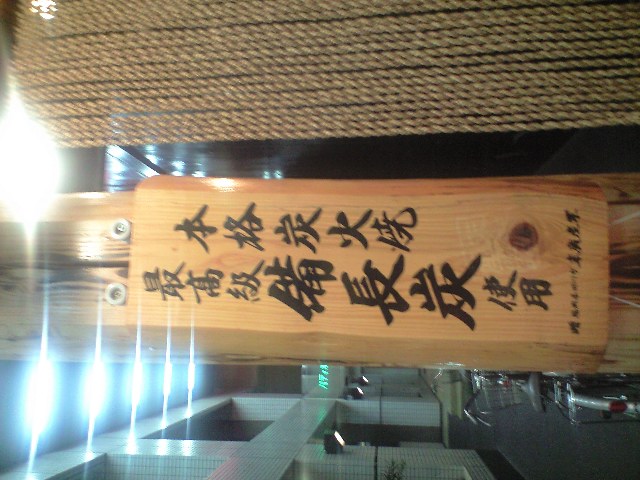 本格炭火焼
最高級備長炭使用